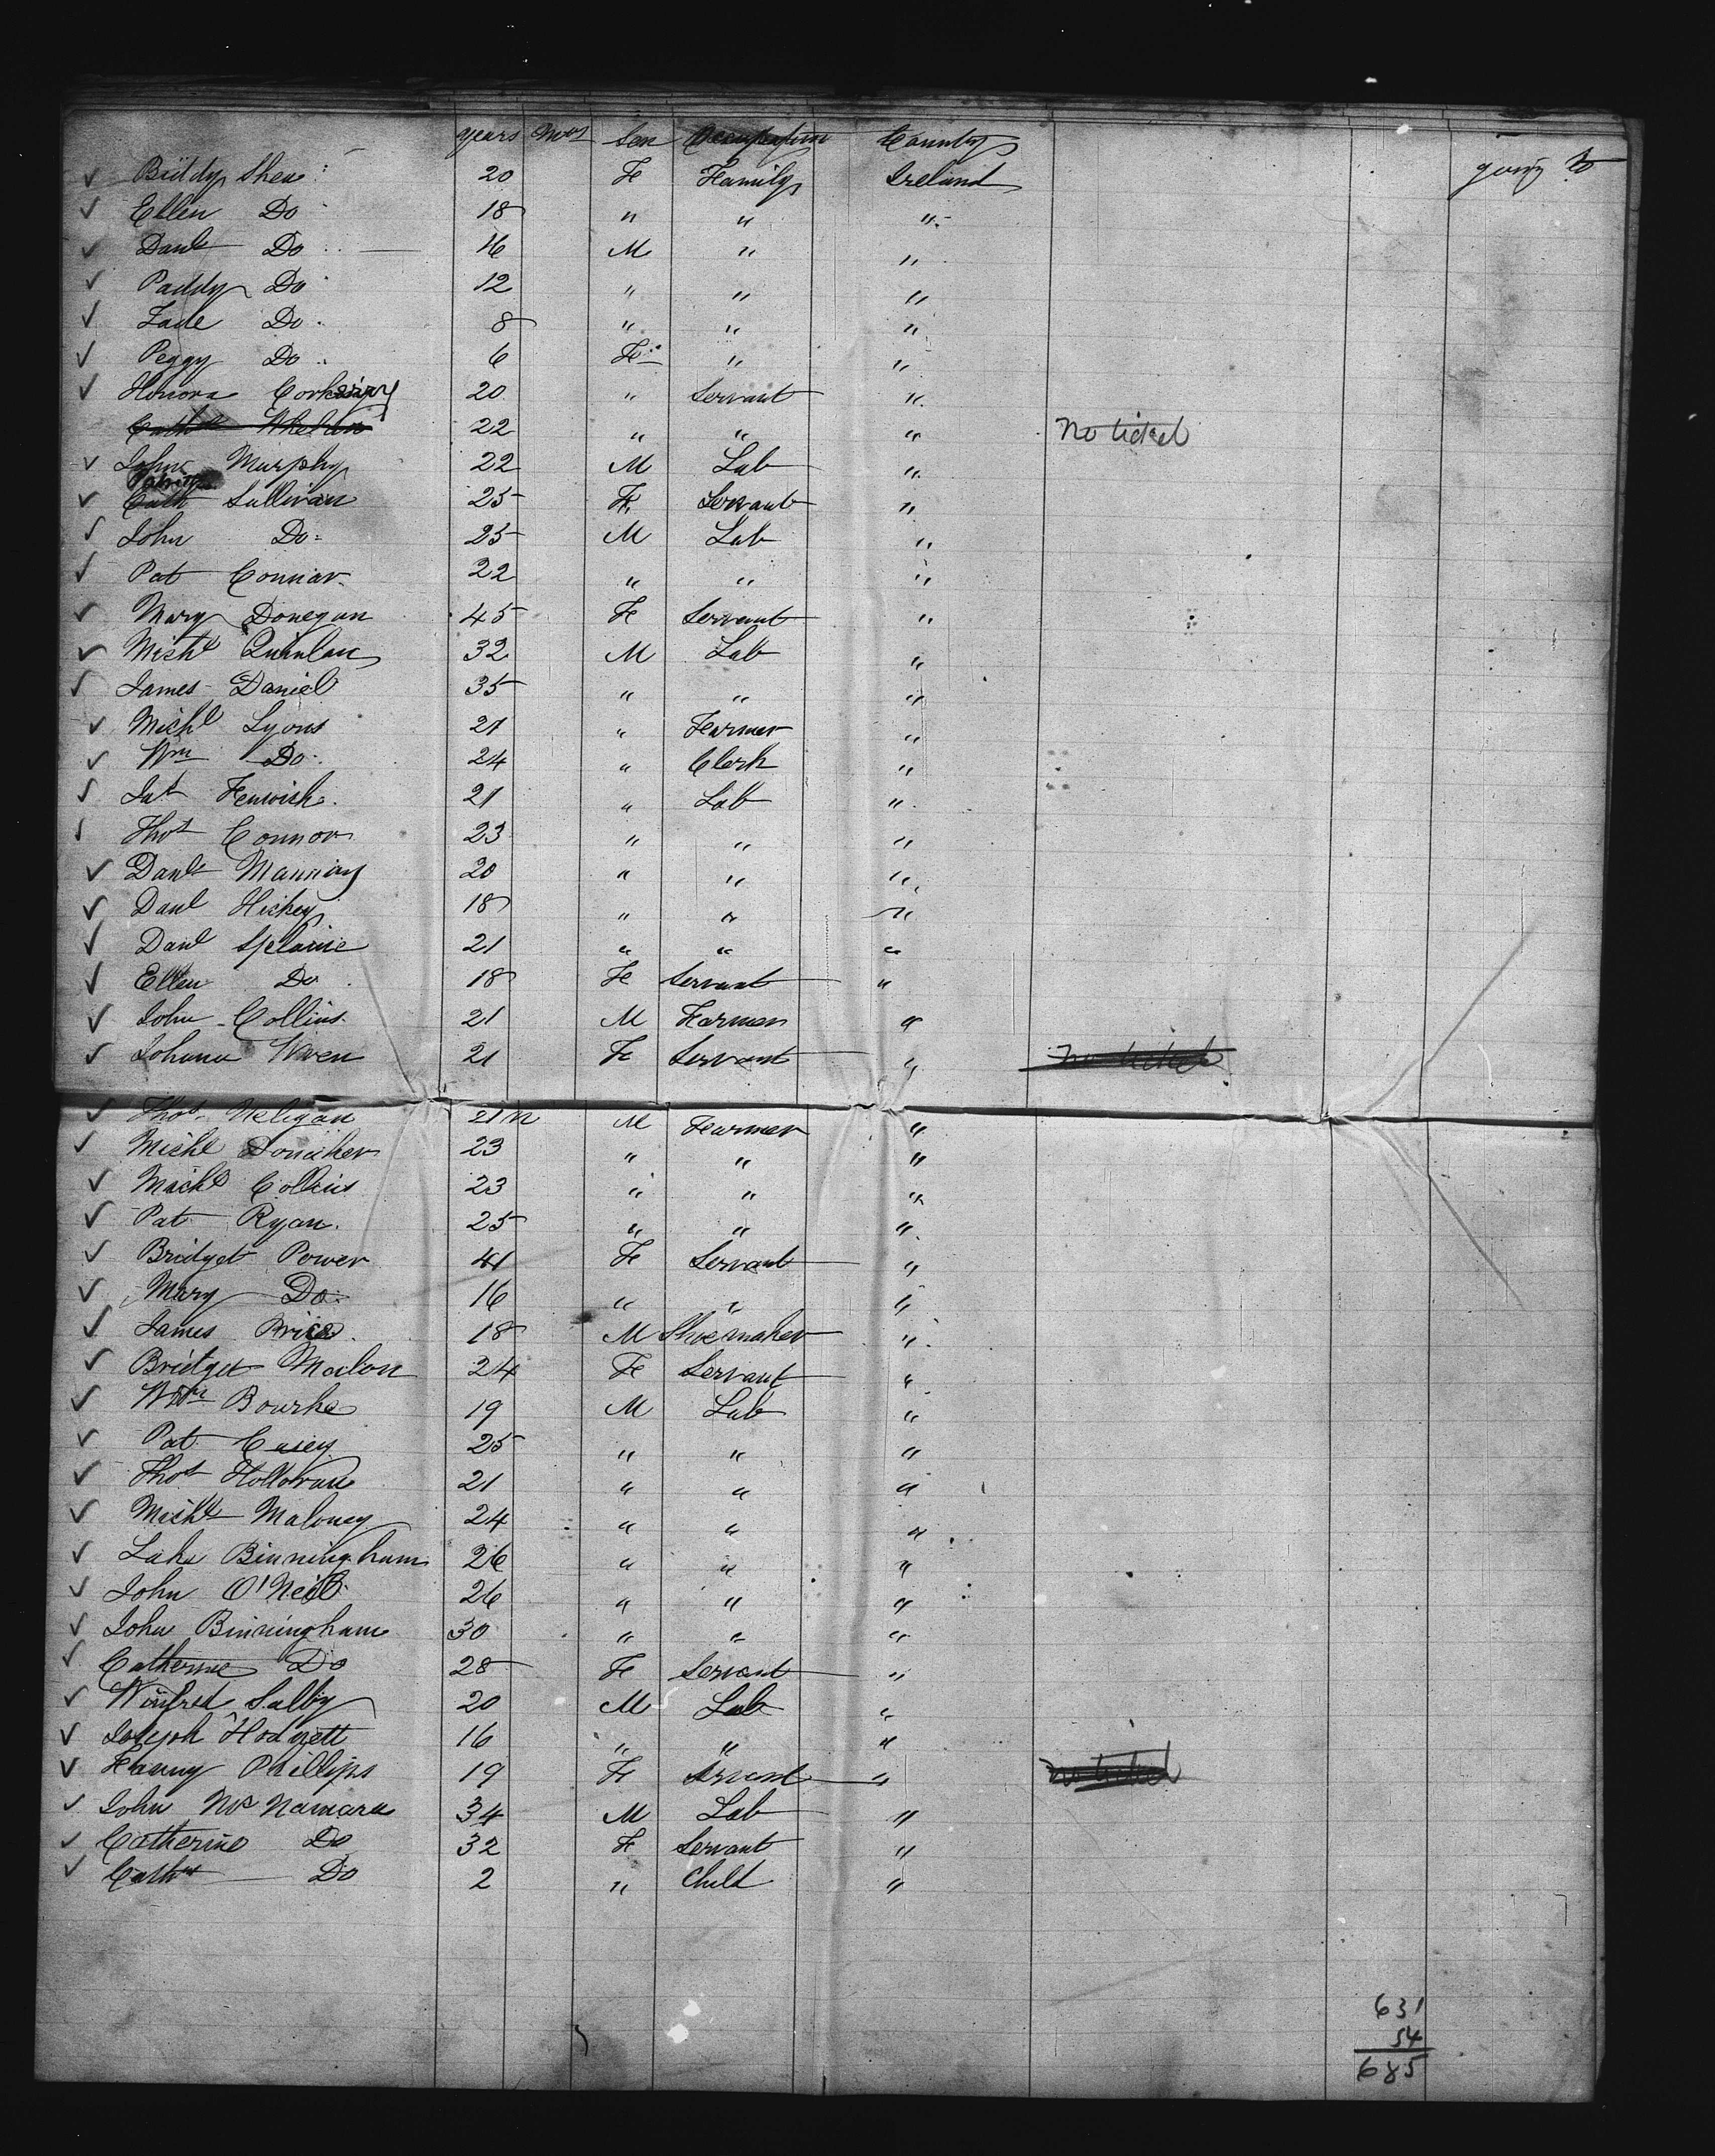 years Mos Sex Occupation Country going to
✓ Biddy Shea 20 Fe Family Ireland
✓ Ellen Do 18 " " "
✓ Danl Do 16 M " "
✓ Paddy Do 12 " " "
✓ Jade Do 8 " " "
✓ Peggy Do 6 Fe " "
✓ Honora 20 " Servant "
Cath Whelan 22 " " " No ticket
✓ John Murphy 22 M Lab "
Patrick
✓ Cath Sullivan 25 Fe Servant "
✓ John Do 25 M Lab "
✓ Pat Connar 22 " " "
✓ Mary Donegan 45 Fe Servant "
✓ Michl Quinlan 32 M Lab "
✓ James Daniel 35 " " "
✓ Michl Lyons 21 " Farmer "
✓ Wm Do 24 " Clerk "
✓ Jas Fenwick 21 " Lab "
✓ Thos Connor 23 " " "
✓ Danl Manning 20 " " "
✓ Danl Hickey 18 " " "
✓ Danl Splaine 21 " " "
✓ Ellen Do 18 Fe Servant "
✓ John Collins 21 M Farmer "
✓ Johana Wren 21 Fe Servant " No ticket
✓ Thos Neligan 21 M Farmer "
✓ Michl Donaher 23 " " "
✓ Michl Collins 23 " " "
✓ Pat Ryan 25 " " "
✓ Bridget Power 41 Fe Servant "
✓ Mary Do 16 " " "
✓ James Price 18 M Shoemaker "
✓ Bridget Malon 24 Fe Servant "
✓ Wm Bourke 19 M Lab "
✓ Pat Casey 25 " " "
✓ Thos Holloran 21 " " "
✓ Michl Maloney 24 " " "
✓ Binningham 26 " " "
✓ John O'Neil 26 " " "
✓ John Binningham 30 " " "
✓ Catherine Do 28 Fe Servant "
✓ Winfred Salby 20 M Lab "
✓ Joseph Hodgett 16 " " "
✓ Fanny Phillips 19 Fe Servant " No ticket
✓ John McNamara 34 M Lab "
✓ Catherine Do 32 Fe Servant "
✓ Cath Do 2 " Child "
631
54
685